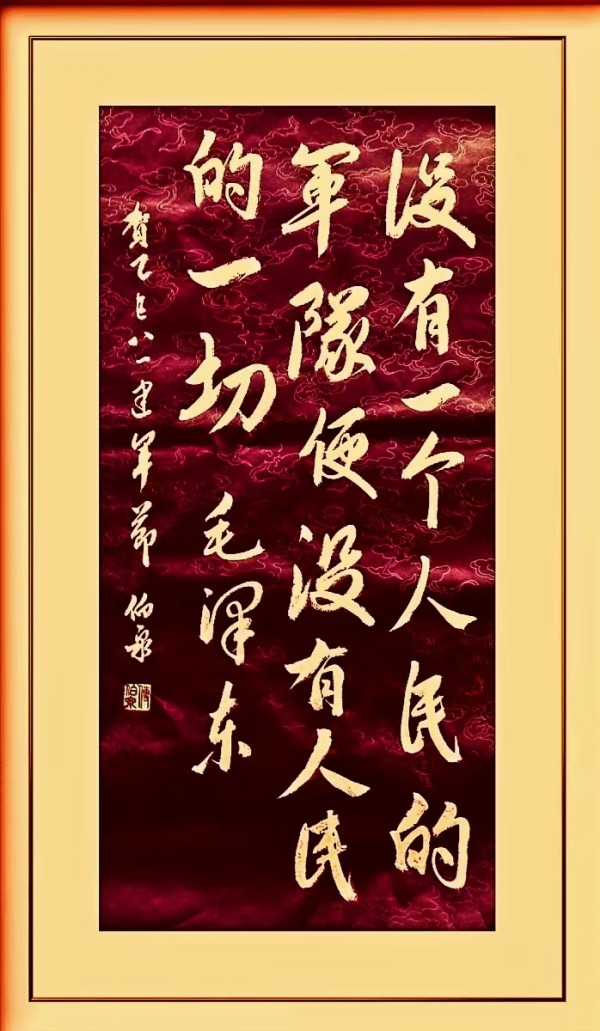 没有一个人民的
軍隊便没有人民
的一切 毛泽东
賀乙巳八一建军節 伯泉